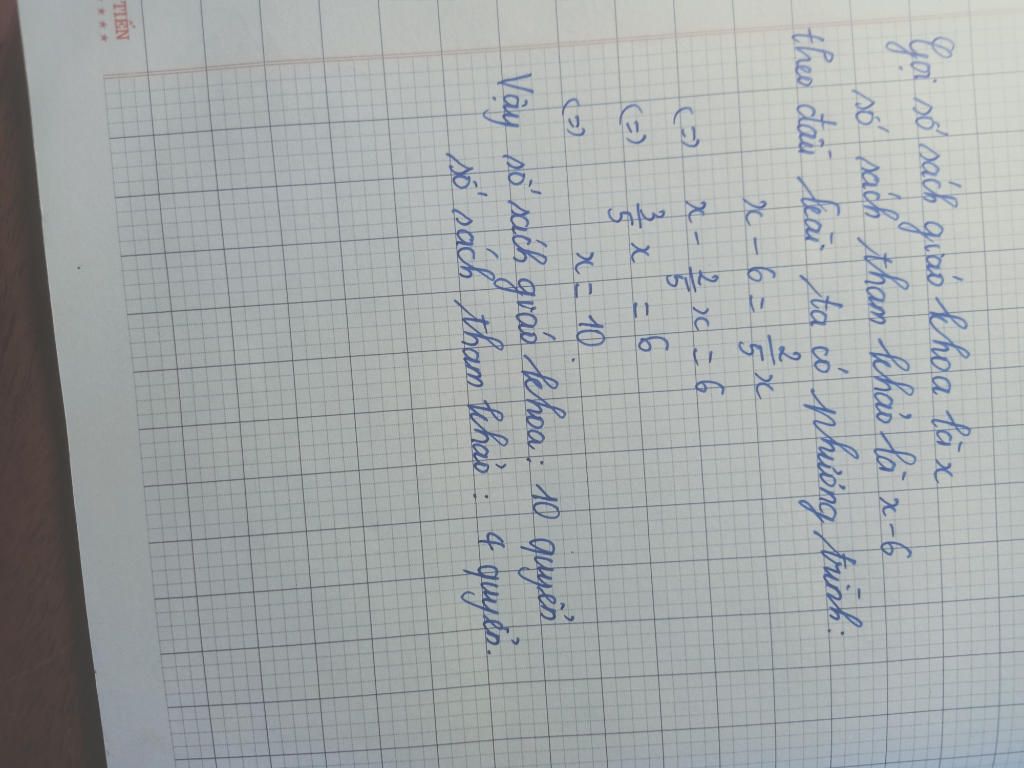 Gọi số sách giáo khoa là x
số sách tham khảo là x-6
theo đầu bài ta có phương trình:
x - 6 = 2/5 x
(=) x - 2/5 x = 6
(=) 3/5 x = 6
(=) x = 10.
Vậy số sách giáo khoa: 10 quyển
số sách tham khảo: 4 quyển.
TIẾN